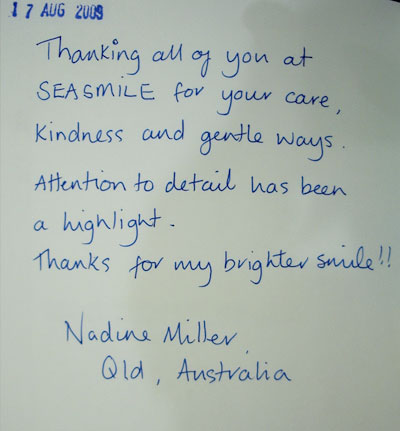 17 AUG 2009
Thanking all of you at
SEASMILE for your care,
Kindness and gentle ways.
Attention to detail has been
a highlight.
Thanks for my brighter smile!!
Nadine Miller,
Qld, Australia